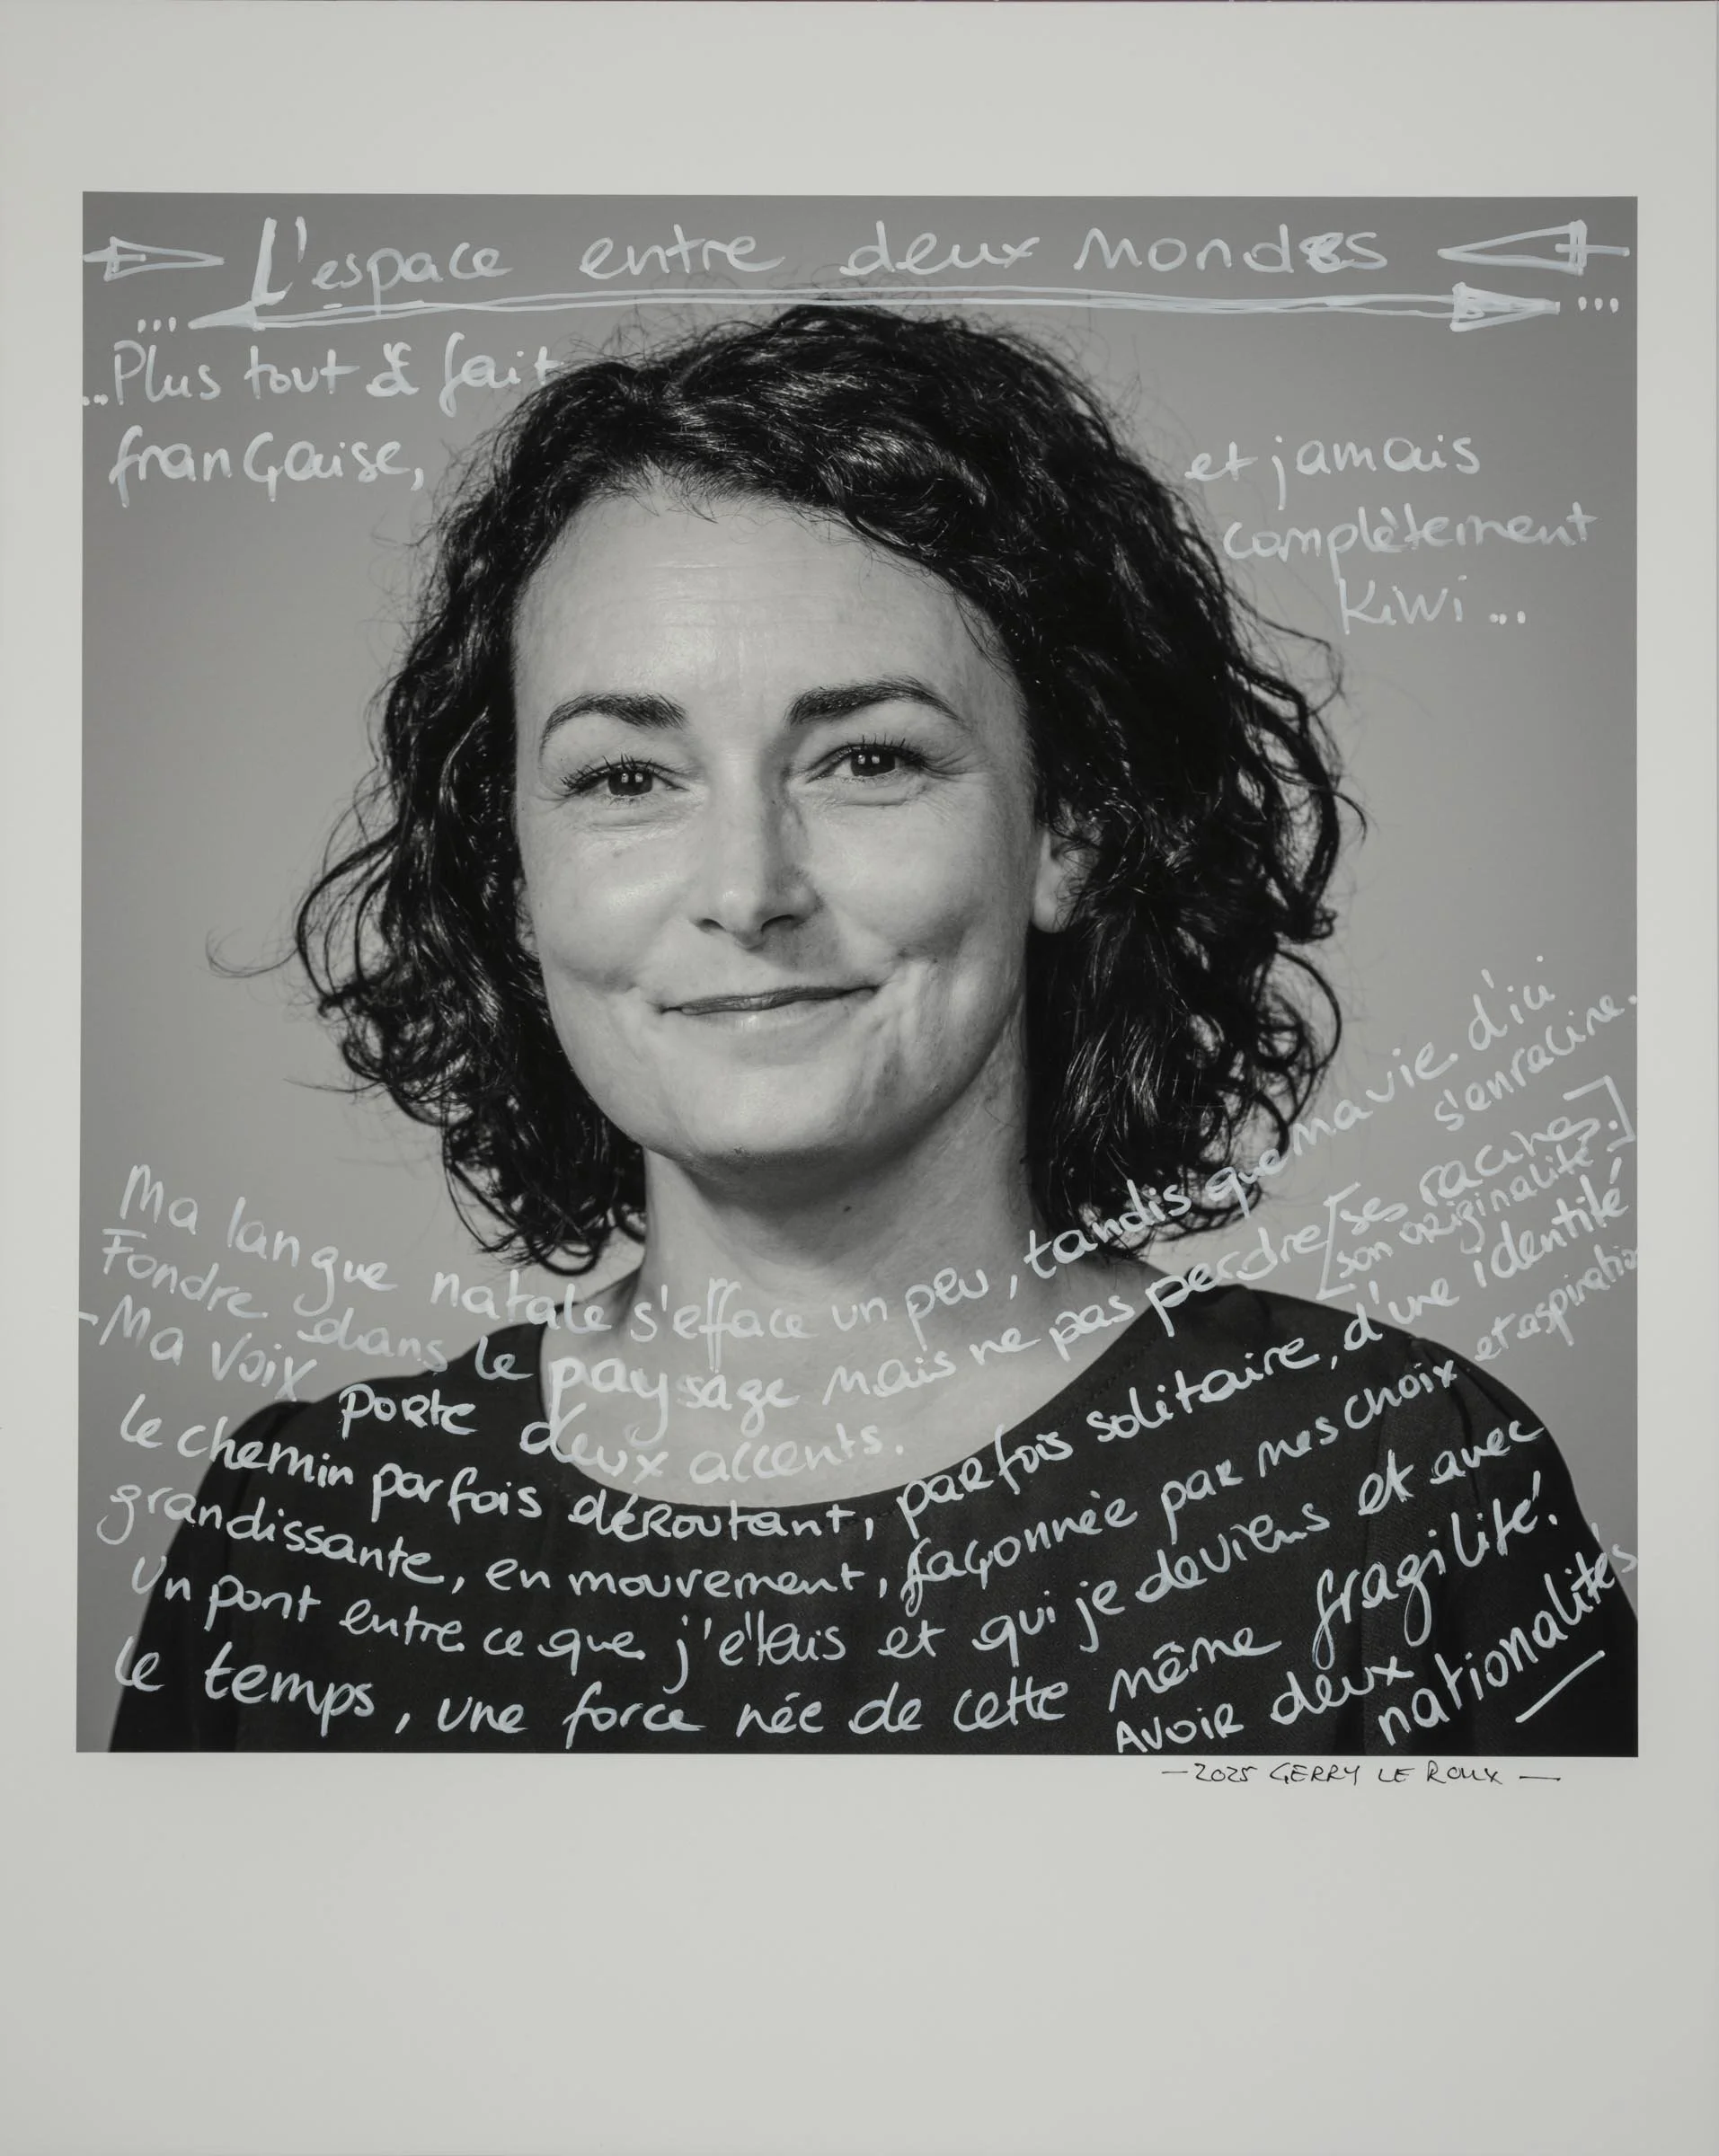 L'espace entre deux mondes
... ...
...Plus tout à fait
française,
et jamais
complètement
Kiwi...
Ma langue natale s'efface un peu, tandis que ma vie d'ici
s'enracine.
Fondre dans le paysage mais ne pas perdre [ses racines.]
[son originalité.
-Ma voix porte deux accents.
Le chemin parfois déroutant, parfois solitaire, d'une identité
grandissante, en mouvement, façonnée par mes choix et aspiratio
Un pont entre ce que j'étais et qui je deviens et avec
le temps, une force née de cette même fragilité.
AVOIR deux
nationalités
-2025 GERRY LE ROUX-